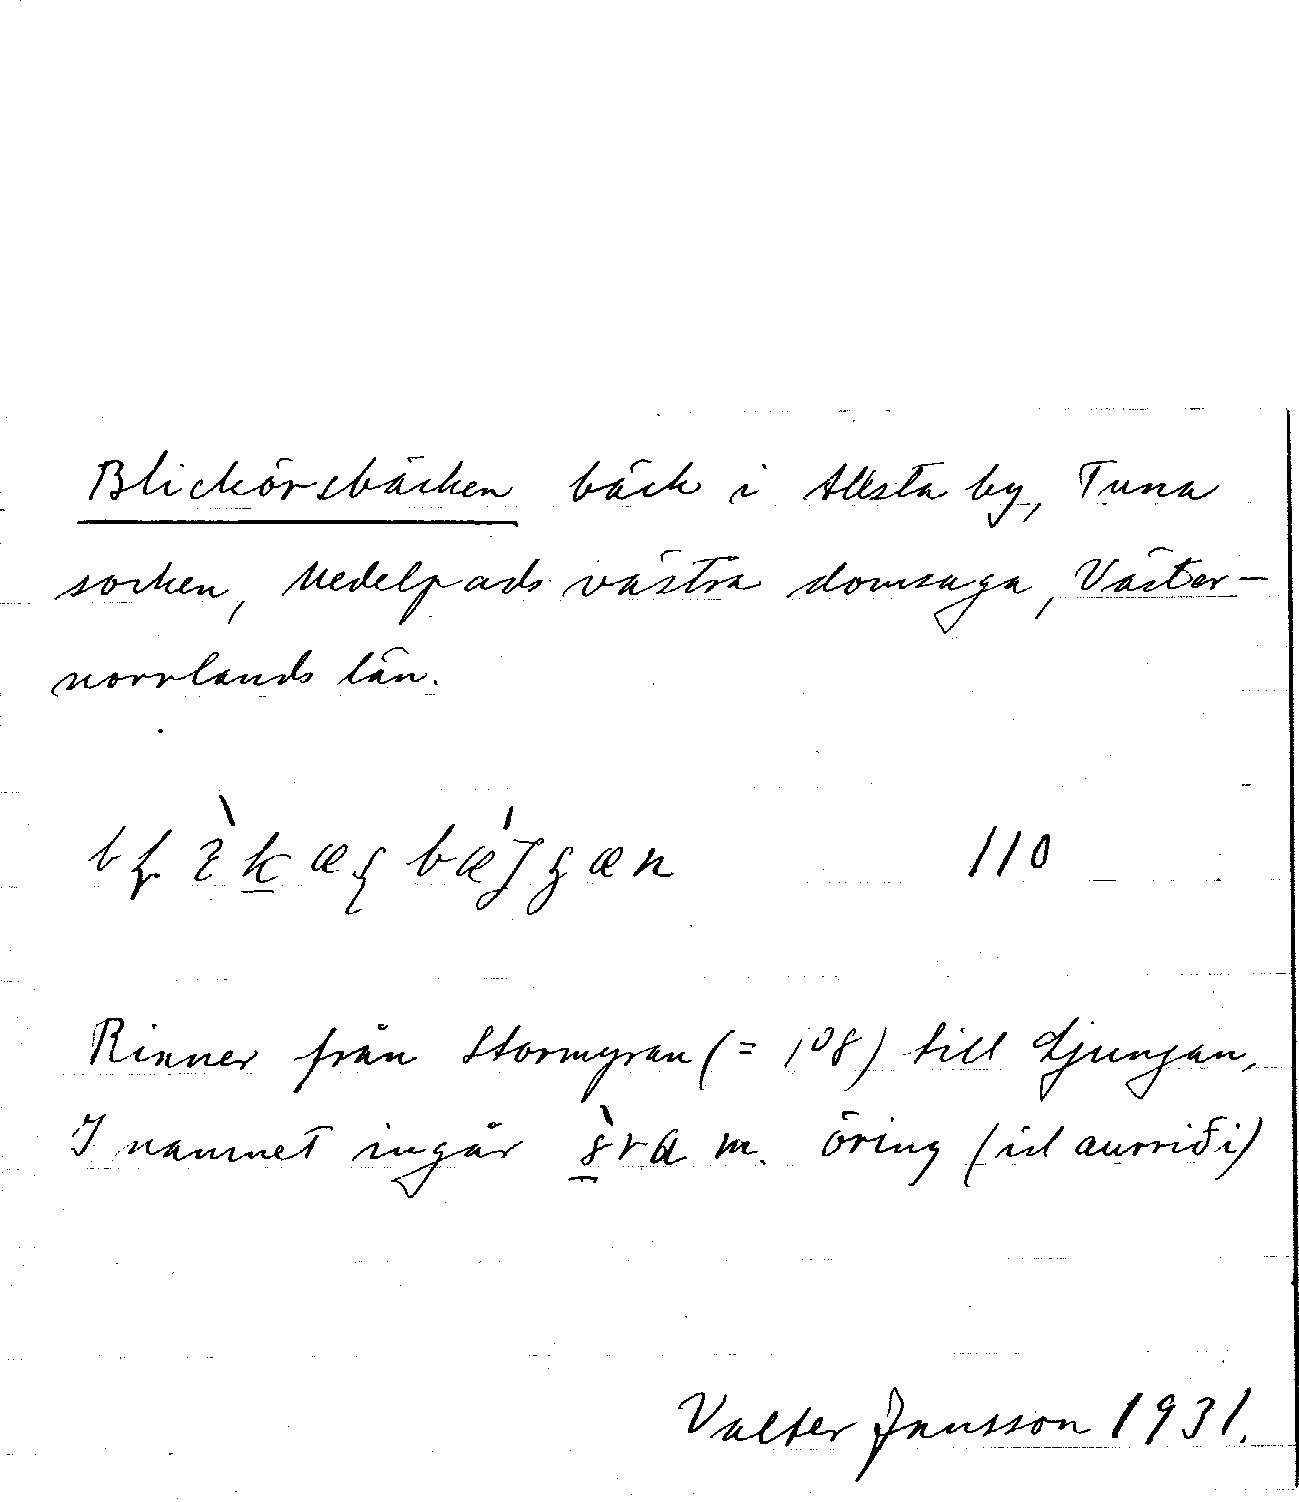 Blickörsbäcken bäck i Allsta by, Tuna
socken, Medelpads västra domsaga, Väster-
norrlands län.
110
Rinner från Stormyran (= 108) till Ljungan,
I namnet ingår m. öring (isl aurriði)
Valter Jansson 1931.